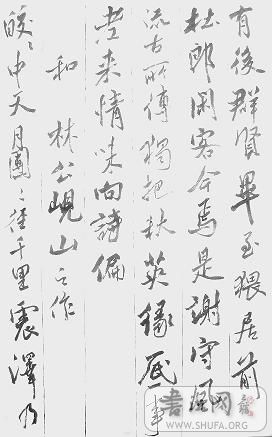 有後群賢畢至猥居前
杜郎閑客今焉是謝守風
流古所傳獨把秋英緣底事
老来情味向詩偏
和林公峴山之作
皎〻中天月團〻徑千里震澤乃
WWW.SHUFA.ORG